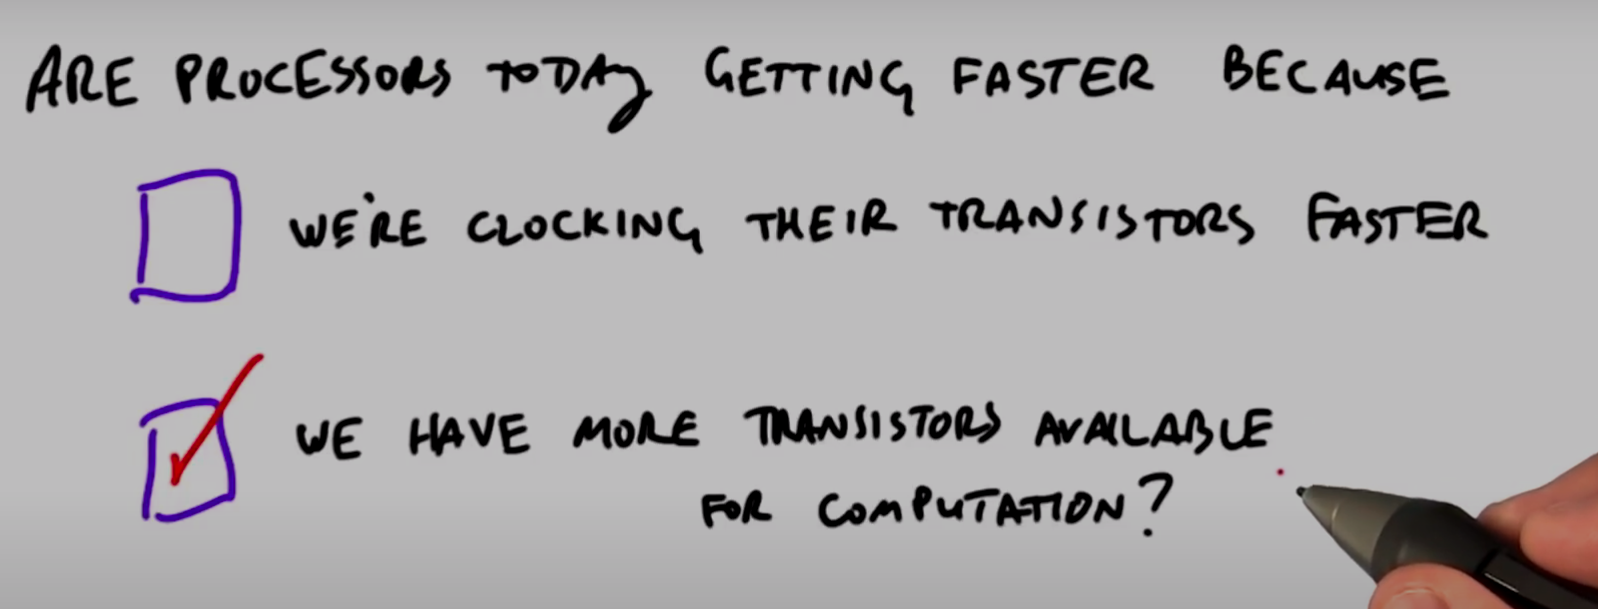 ARE PROCESSORS TODAY GETTING FASTER BECAUSE
WE'RE CLOCKING THEIR TRANSISTORS FASTER
WE HAVE MORE TRANSISTORS AVAILABLE
FOR COMPUTATION?